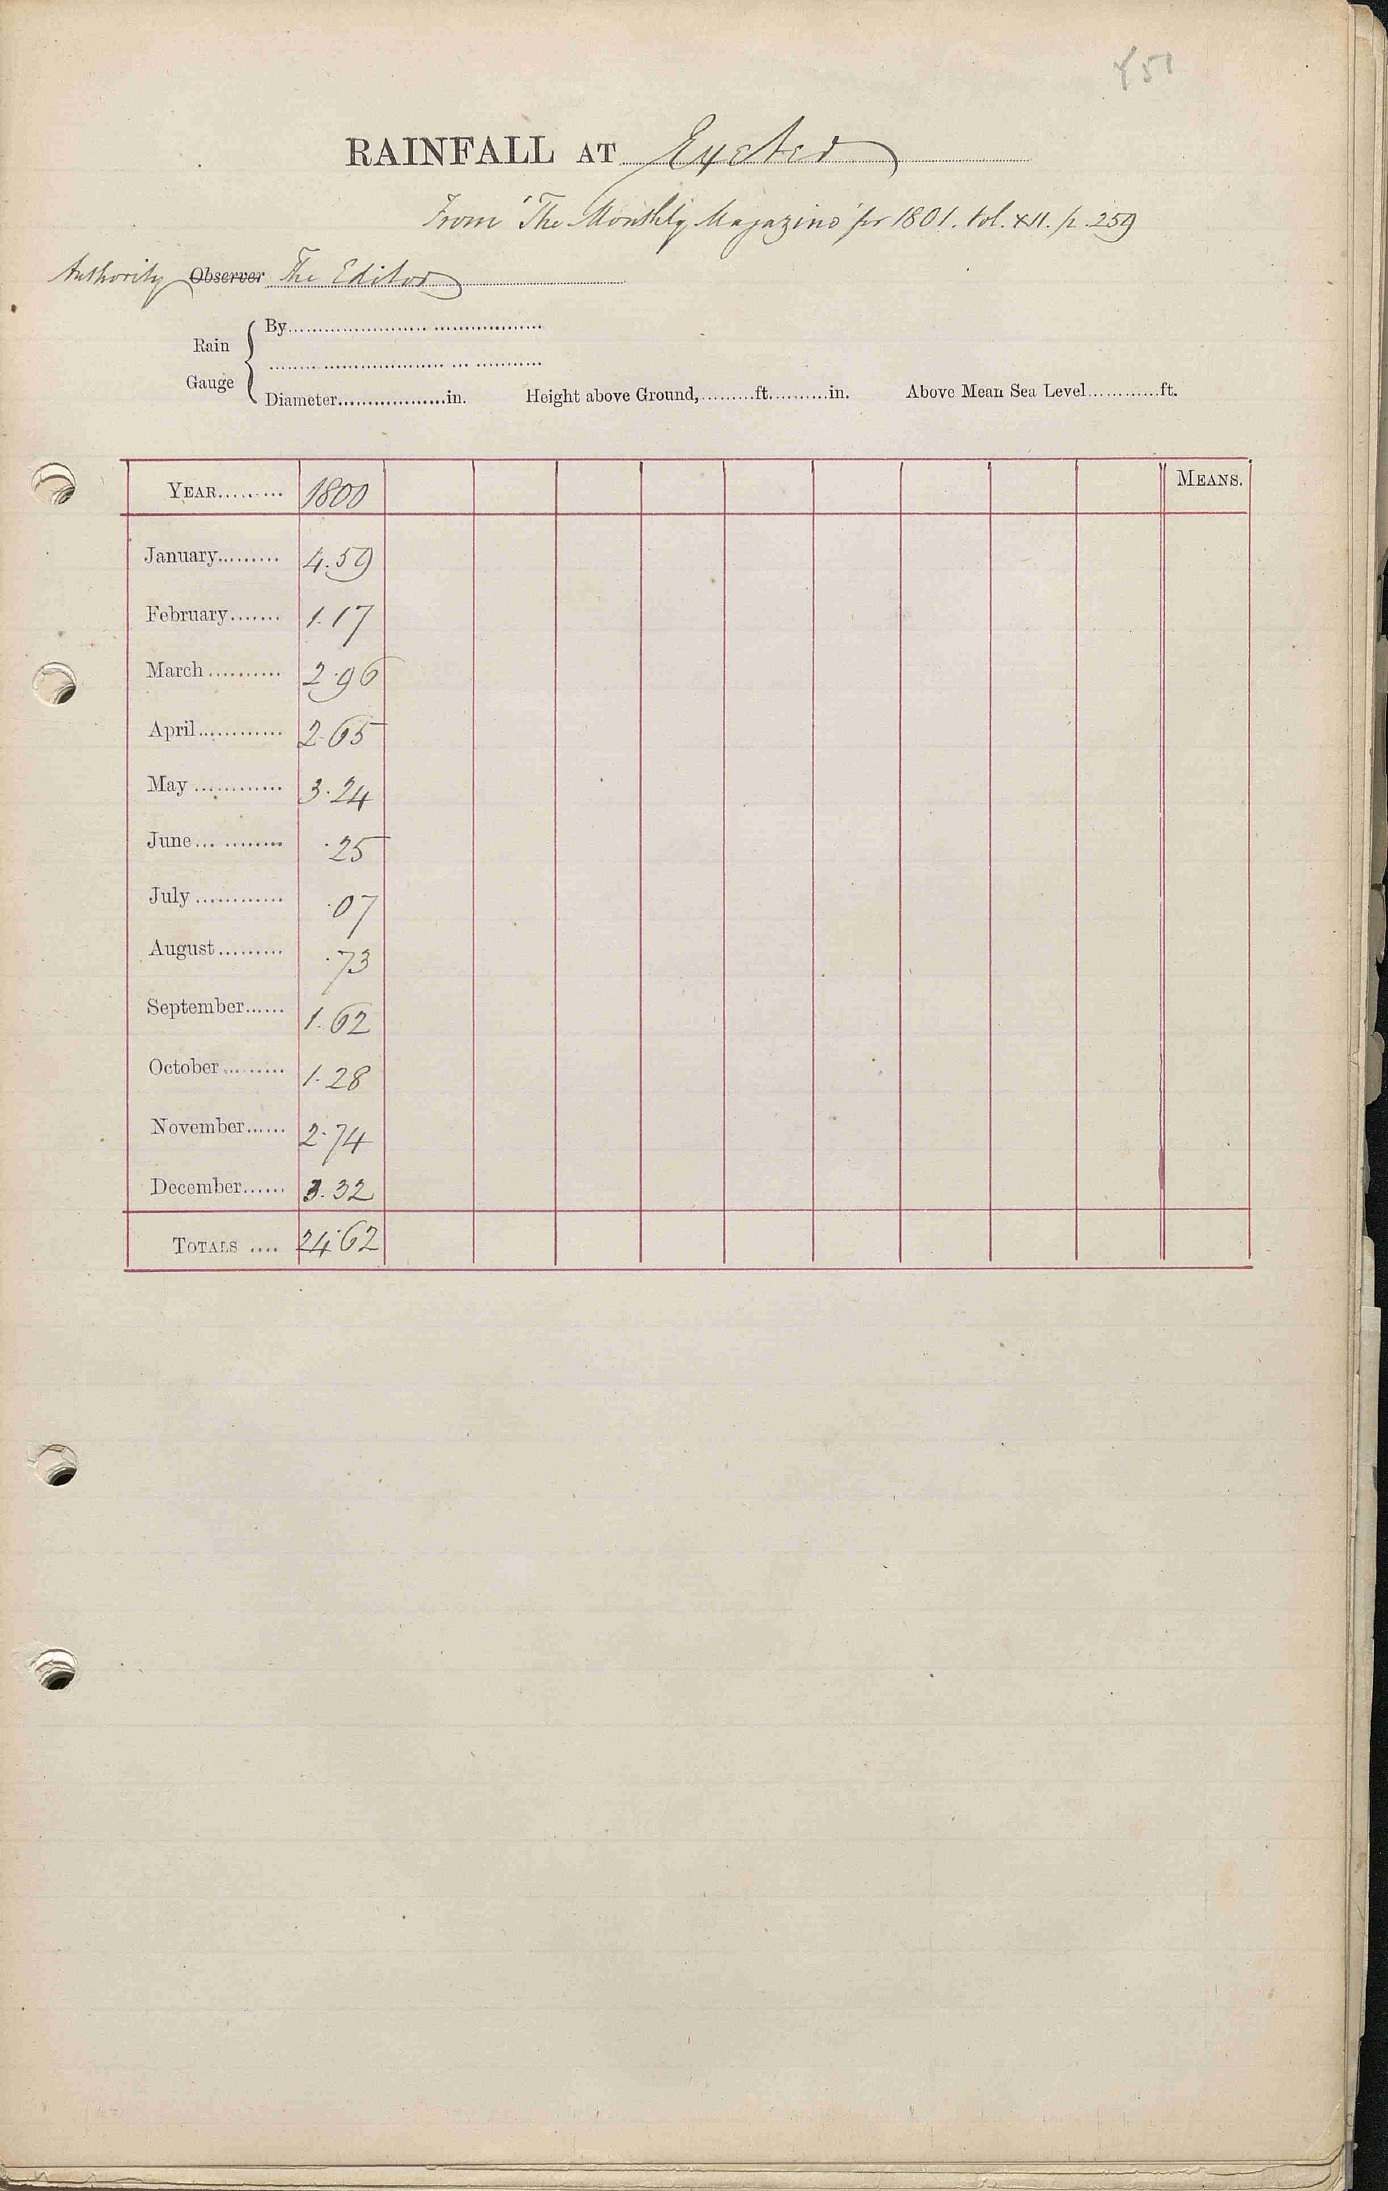 851
RAINFALL AT Exeter
From 'The Monthly Magazine' for 1801. Vol. XII. p. 259
Authority Observer The Editor
Rain Gauge { By
Diameter..................in. Height above Ground,.........ft..........in. Above Mean Sea Level............ft.
YEAR......... 1800 MEANS.
January......... 4.59
February....... 1.17
March.......... 2.96
April............ 2.65
May ............ 3.24
June............ .25
July ............ .07
August......... .73
September...... 1.62
October......... 1.28
November...... 2.74
December...... 3.32
TOTALS .... 24.62